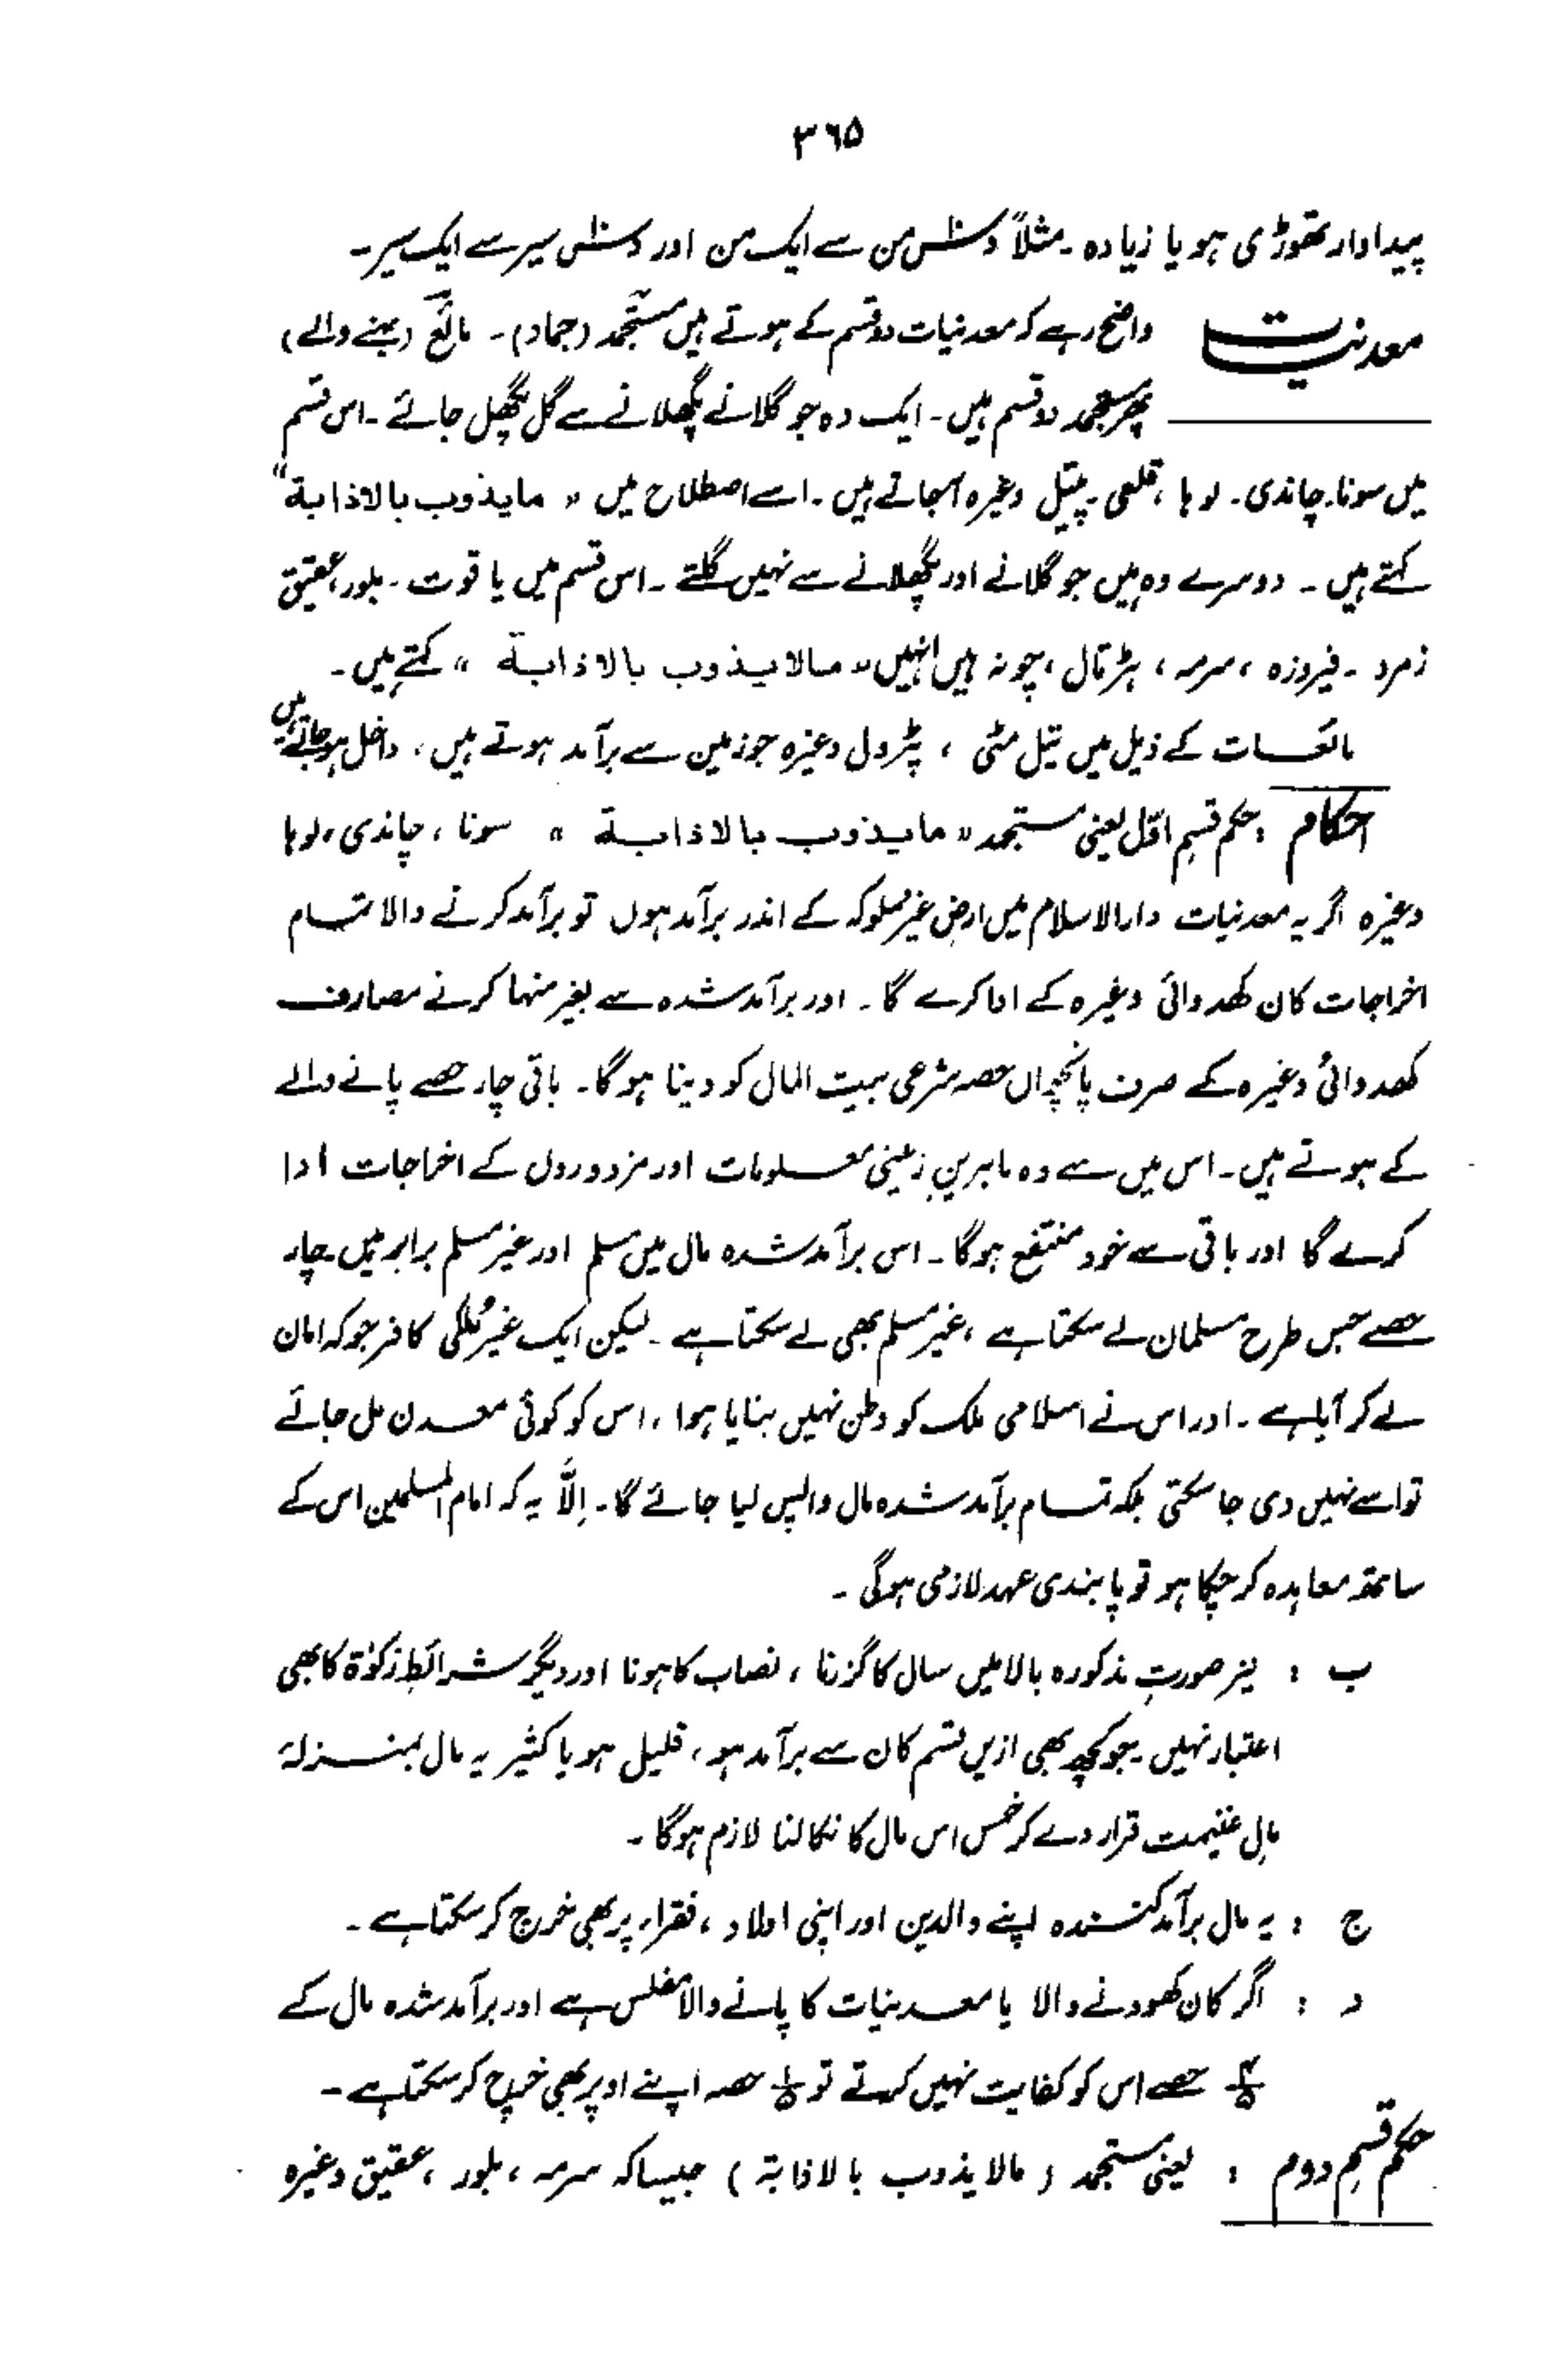 ۳۶۵
پیداوار تھوڑی ہو یا زیادہ ۔ مثلاً دس من سے ایک من اور دس سیر سے ایک سیر ۔
معدنیات واضح رہے کہ معدنیات دو قسم کے ہوتے ہیں مستجمد (جماد) ۔ مائع (بہنے والے)
پھر مستجمد دو قسم ہیں ۔ ایک وہ جو گلانے پگھلانے سے گل پگھل جائے ۔ اس قسم
میں سونا ۔ چاندی ۔ لوہا ، قلعی ۔ پیتل وغیرہ آجاتے ہیں ۔ اسے اصطلاح میں " مایذوب بالاذابة "
کہتے ہیں ۔ دوسرے وہ ہیں جو گلانے اور پگھلانے سے نہیں گلتے ۔ اس قسم میں یاقوت ۔ بلور ، عقیق
زمرد ۔ فیروزہ ، سرمہ ، ہڑتال ، چونہ ہیں انہیں " مالایذوب بالاذابة " کہتے ہیں ۔
مائعات کے ذیل میں تیل مٹی ، پٹرول وغیرہ جو زمین سے برآمد ہوتے ہیں ، داخل ہو جاتے ہیں
احکام : حکم قسم اوّل یعنی مستجمد " مایذوب بالاذابة " سونا ، چاندی ، لوہا
وغیرہ اگر یہ معدنیات دارالاسلام میں ارض غیر مملوکہ کے اندر برآمد ہوں تو برآمد کرنے والا تمام
اخراجات کان کھدوائی وغیرہ کے ادا کرے گا ۔ اور برآمد شدہ سے بغیر منہا کرنے مصارف
کھدوائی وغیرہ کے صرف پانچواں حصہ شرعی بیت المال کو دینا ہوگا ۔ باقی چار حصے پانے والے
کے ہوتے ہیں ۔ اس میں سے وہ ماہرینِ زمینی معلومات اور مزدوروں کے اخراجات ادا
کرے گا اور باقی سے خود منتفع ہوگا ۔ اس برآمد شدہ مال میں مسلم اور غیر مسلم برابر ہیں ۔ چار
حصے جس طرح مسلمان لے سکتا ہے ، غیر مسلم بھی لے سکتا ہے ۔ لیکن ایک غیر مُلکی کافر جو کہ امان
لے کر آیا ہے ۔ اور اس نے اسلامی ملک کو وطن نہیں بنایا ہوا ، اس کو کوئی معدن مل جائے
تو اسے نہیں دی جا سکتی بلکہ تمام برآمد شدہ مال واپس لیا جائے گا ۔ اِلَّا یہ کہ امام المسلمین اس کے
ساتھ معاہدہ کر چکا ہو تو پابندی عہد لازمی ہوگی ۔
ب : نیز صورتِ مذکورہ بالا میں سال کا گزرنا ، نصاب کا ہونا اور دیگر شرائطِ زکوٰۃ کا بھی
اعتبار نہیں ۔ جو کچھ بھی ازیں قسم کان سے برآمد ہو ، قلیل ہو یا کثیر یہ مال بمنزلۂ
مالِ غنیمت قرار دے کر خمس اس مال کا نکالنا لازم ہوگا ۔
ج : یہ مال برآمد کنندہ اپنے والدین اور اپنی اولاد ، فقراء پر بھی خرچ کر سکتا ہے ۔
د : اگر کان کھودنے والا یا معدنیات کا پانے والا مفلس ہے اور برآمد شدہ مال کے
۴/۵ حصے اس کو کفایت نہیں کرتے تو ۱/۵ حصہ اپنے اوپر بھی خرچ کر سکتا ہے ۔
حکم قسم دوم : یعنی مستجمد ( مالایذوب بالاذابة ) جیسا کہ سرمہ ، بلور ، عقیق وغیرہ